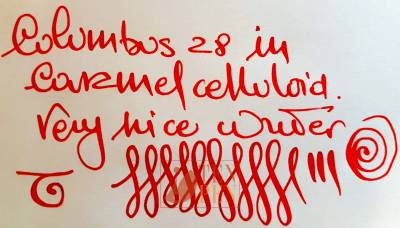 Columbus 28 in
Caramel celluloid.
Very nice writer